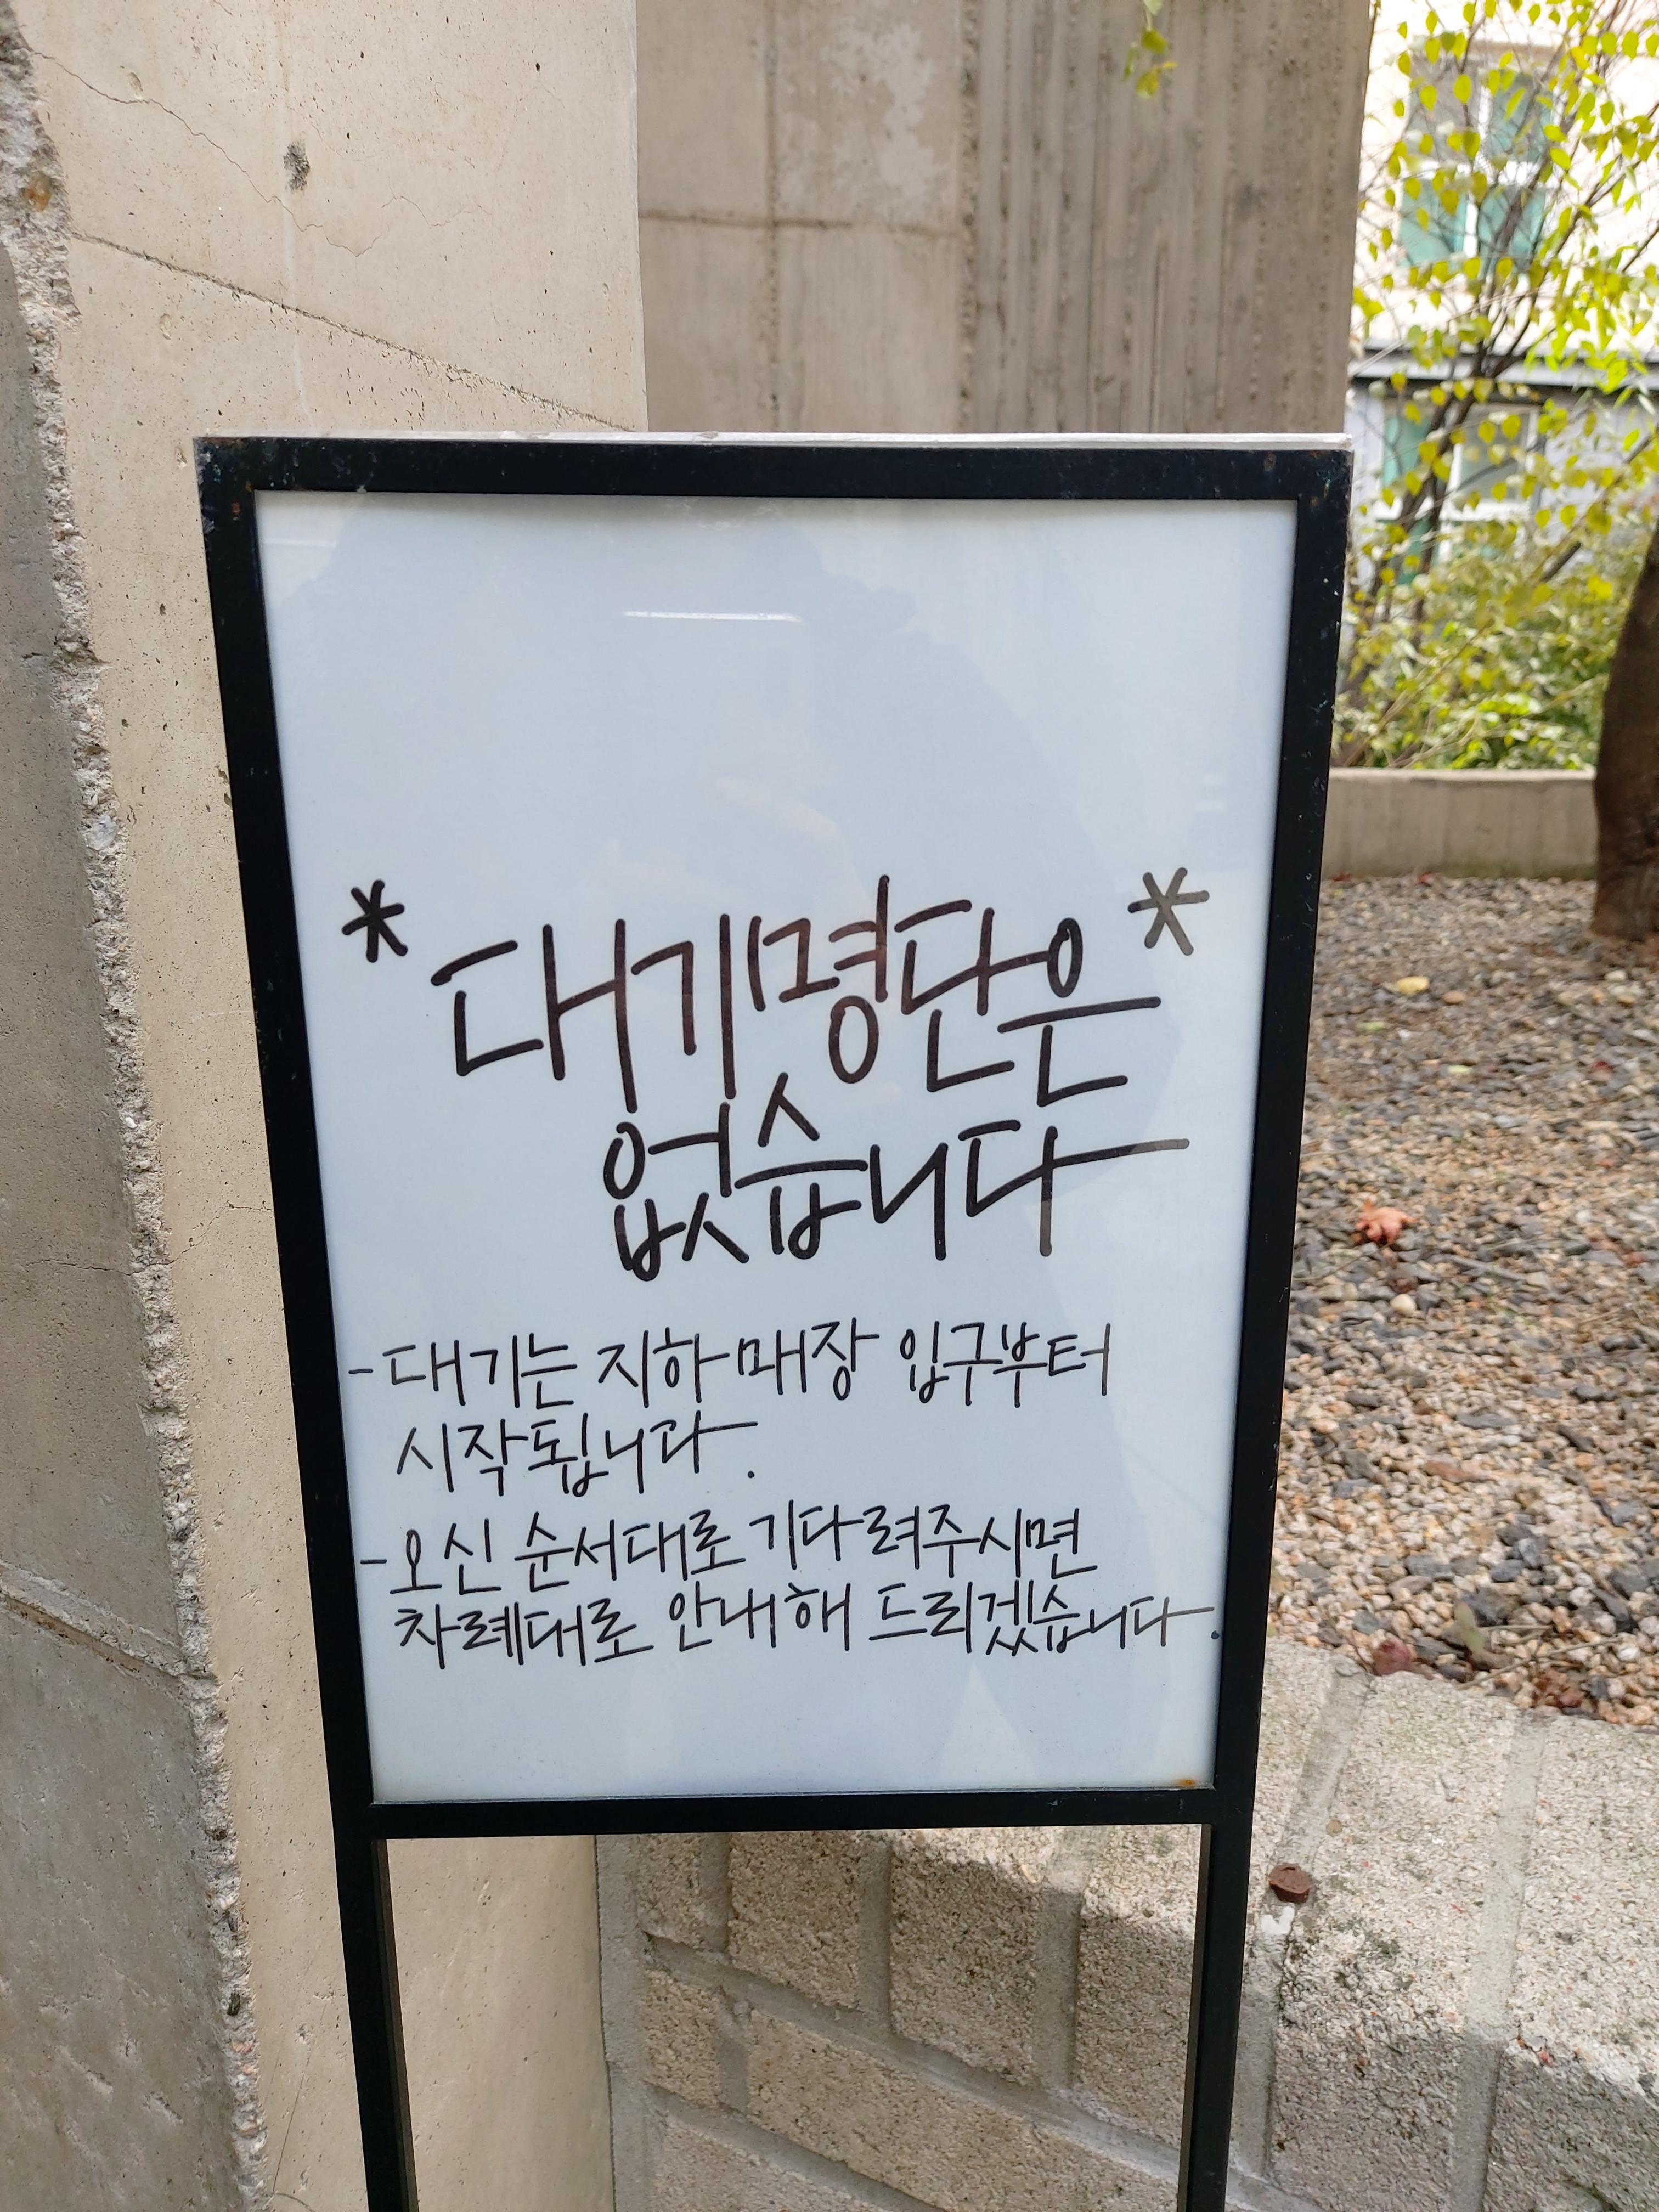 * 대기명단은 *
없습니다
- 대기는 지하 매장 입구부터
시작됩니다.
- 오신 순서대로 기다려주시면
차례대로 안내해 드리겠습니다.